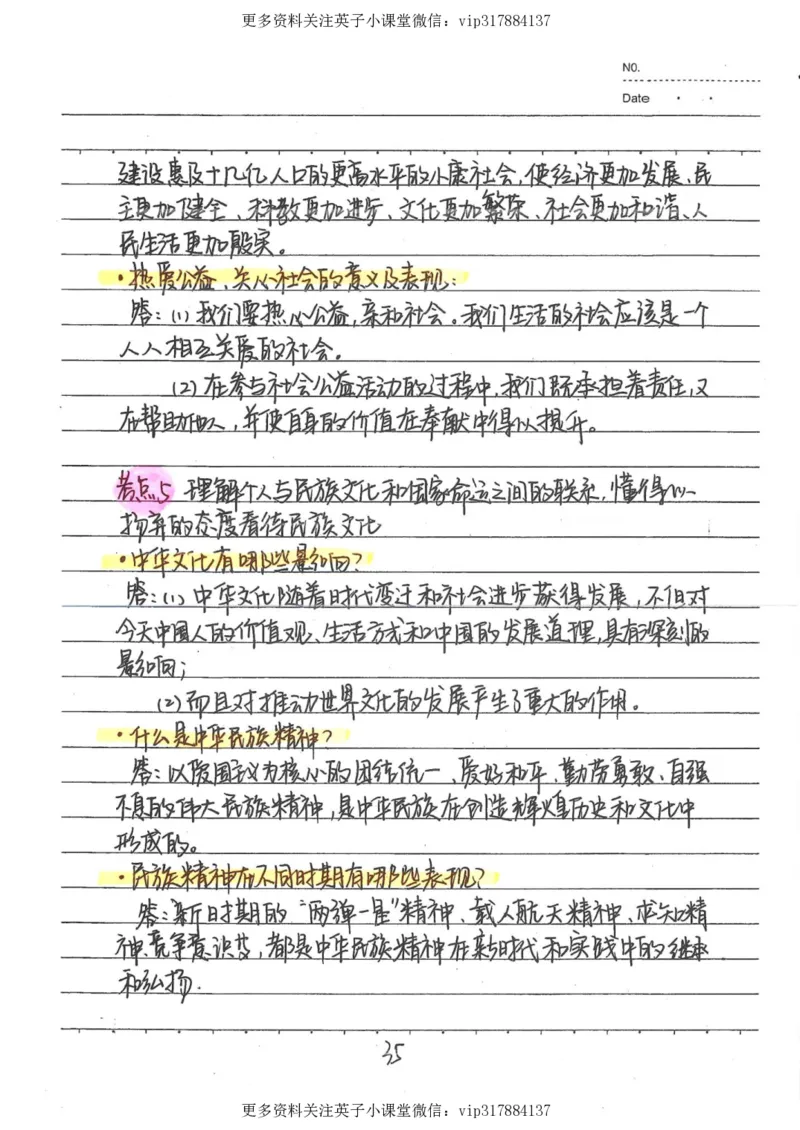 更多资料关注英子小课堂微信：vip317884137
NO.
Date
建设惠及十几亿人口的更高水平的小康社会，使经济更加发展、民
主更加健全、科教更加进步、文化更加繁荣、社会更加和谐、人
民生活更加殷实。
·热爱公益、关心社会的意义及表现：
答：(1)我们要热心公益，亲和社会。我们生活的社会应该是一个
人人相互关爱的社会。
(2)在参与社会公益活动的过程中，我们既承担着责任，又
在帮助他人，并使自身的价值在奉献中得以提升。
考点5 理解个人与民族文化和国家命运之间的联系，懂得以
扬弃的态度看待民族文化
·中华文化有哪些影响？
答：(1)中华文化随着时代变迁和社会进步获得发展，不但对
今天中国人的价值观、生活方式和中国的发展道理，具有深刻的
影响；
(2)而且对推动世界文化的发展产生了重大的作用。
·什么是中华民族精神？
答：以爱国主义为核心的团结统一、爱好和平、勤劳勇敢、自强
不息的伟大民族精神，是中华民族在创造辉煌历史和文化中
形成的。
·民族精神在不同时期有哪些表现？
答：新时期的“两弹一星”精神、载人航天精神、求知精
神、竞争意识等，都是中华民族精神在新时代和实践中的继承
和弘扬.
35
更多资料关注英子小课堂微信：vip317884137